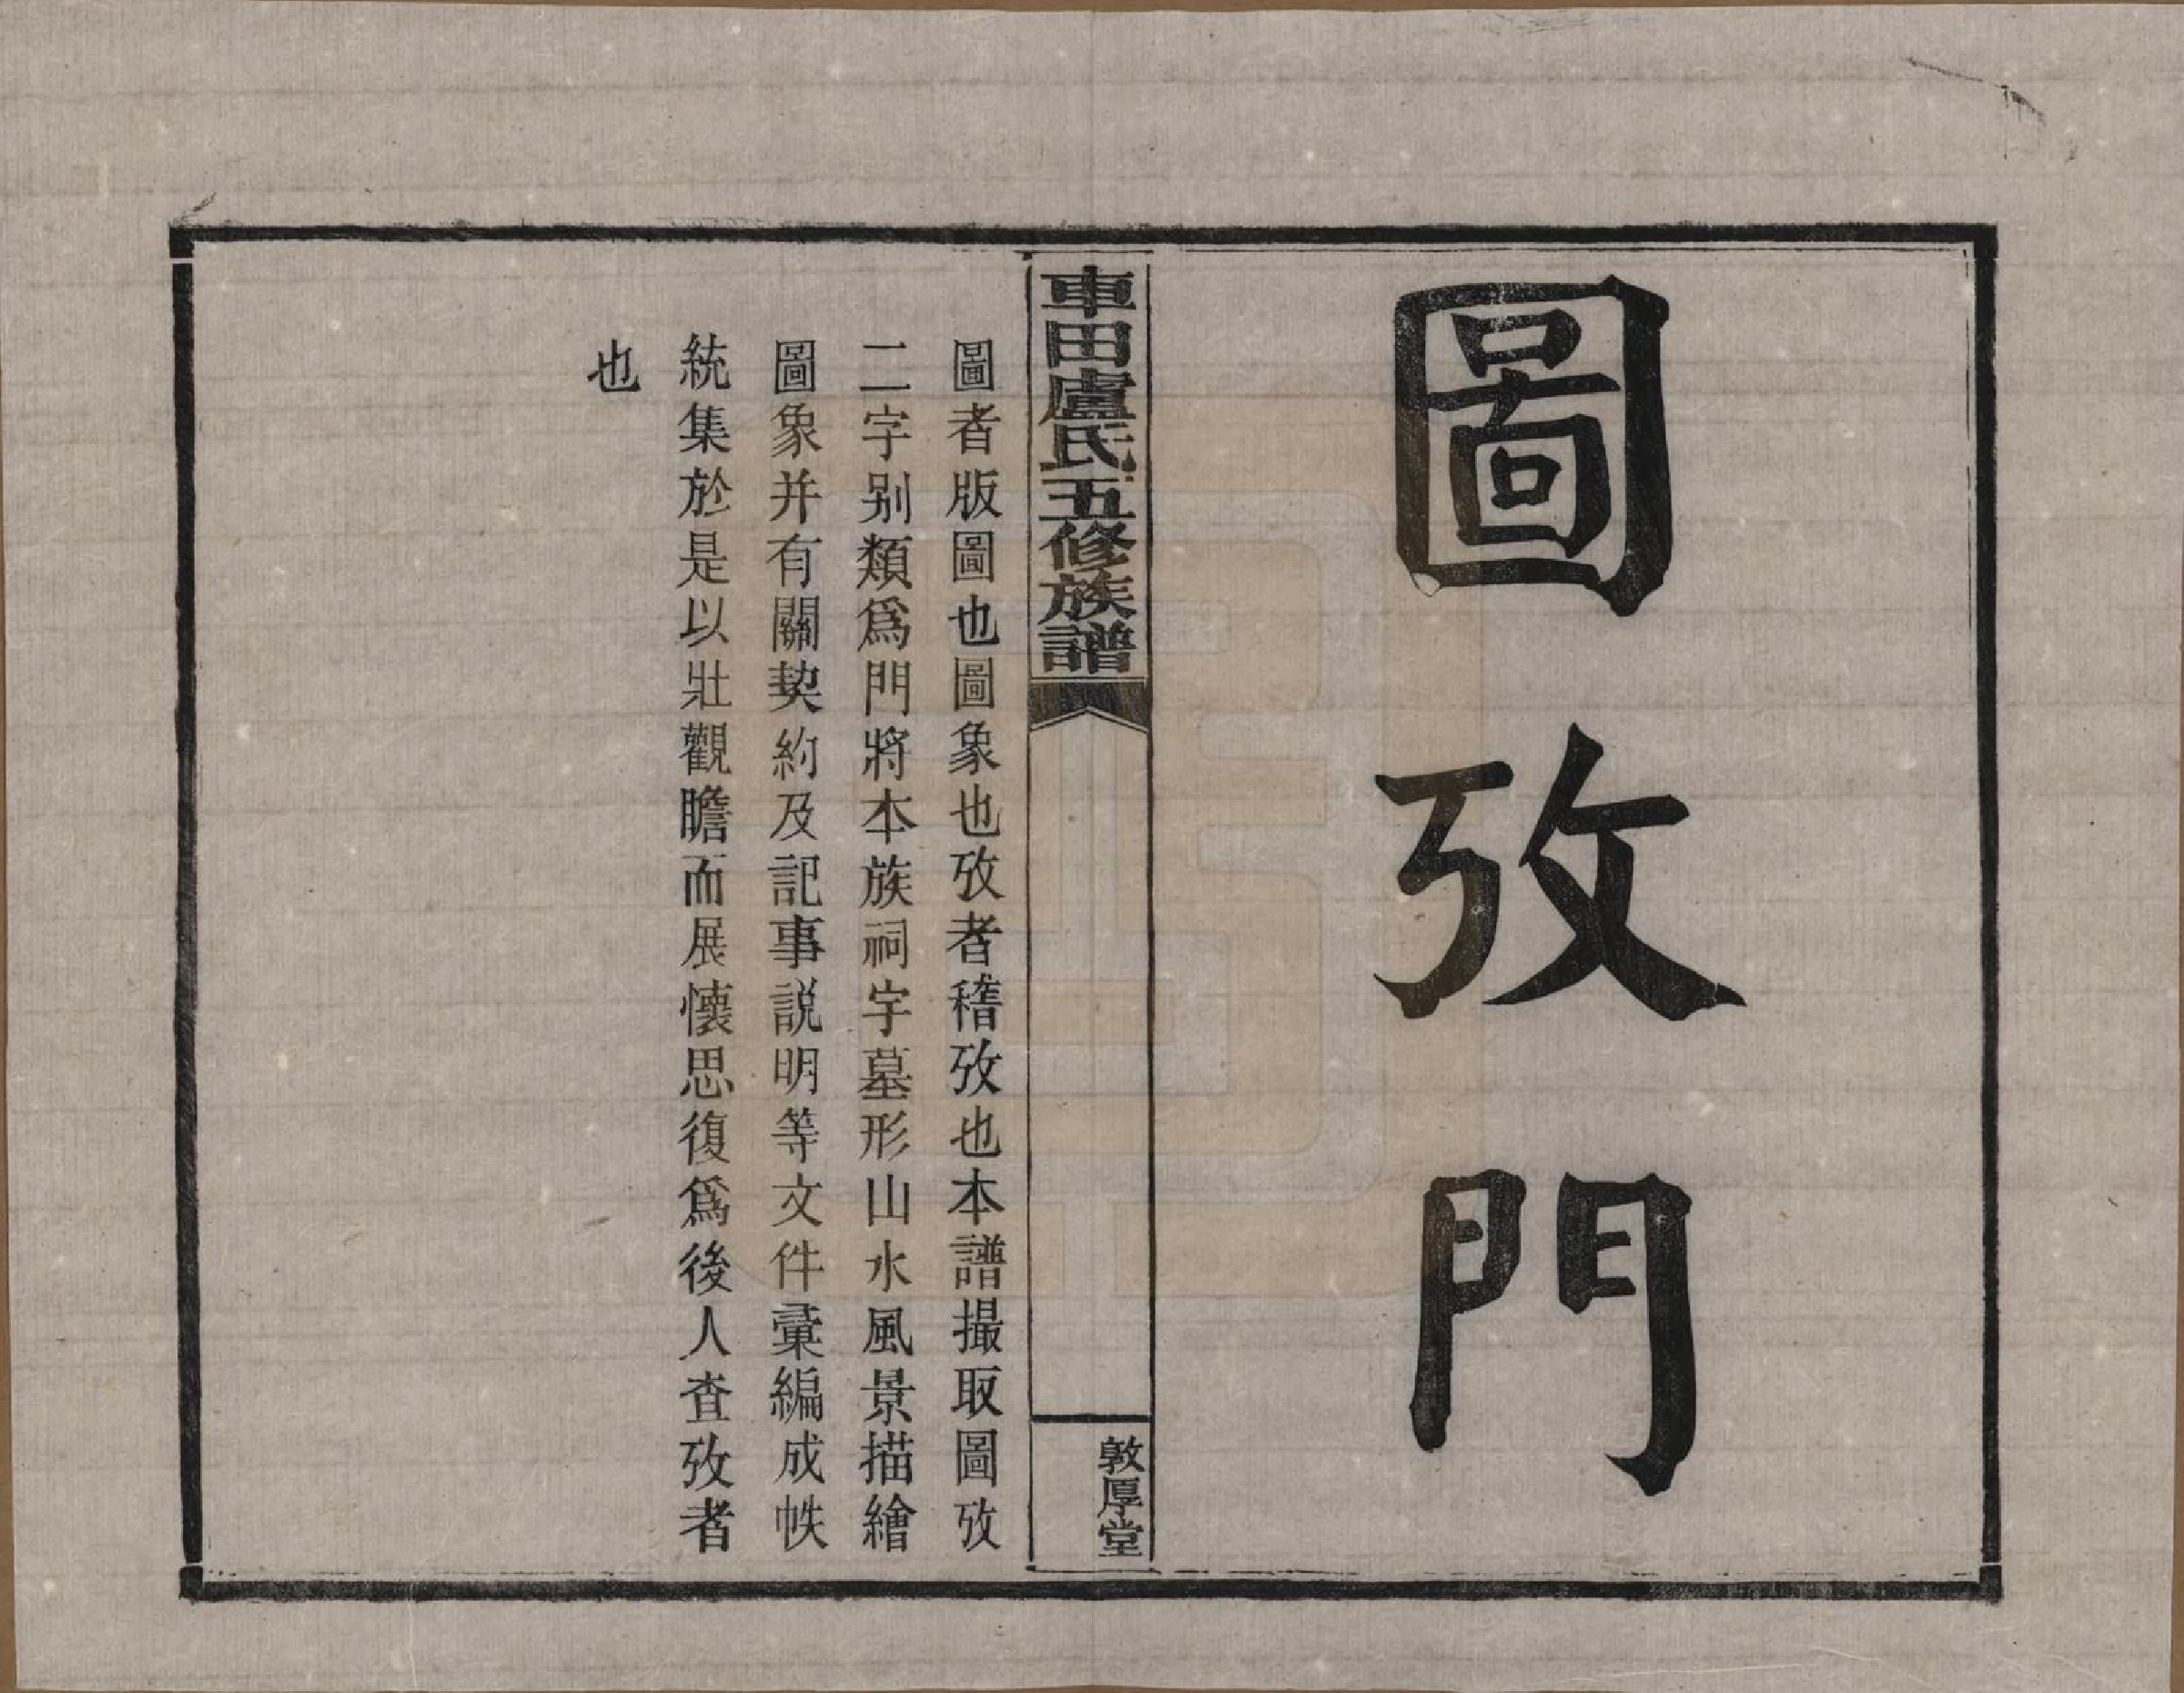 圖攷門
車田盧氏五修族譜
敦厚堂
圖者版圖也圖象也攷者稽攷也本譜撮取圖攷
二字别類爲門將本族祠宇墓形山水風景描繪
圖象并有關契約及記事説明等文件彙編成帙
統集於是以壯觀瞻而展懷思復爲後人查攷者
也